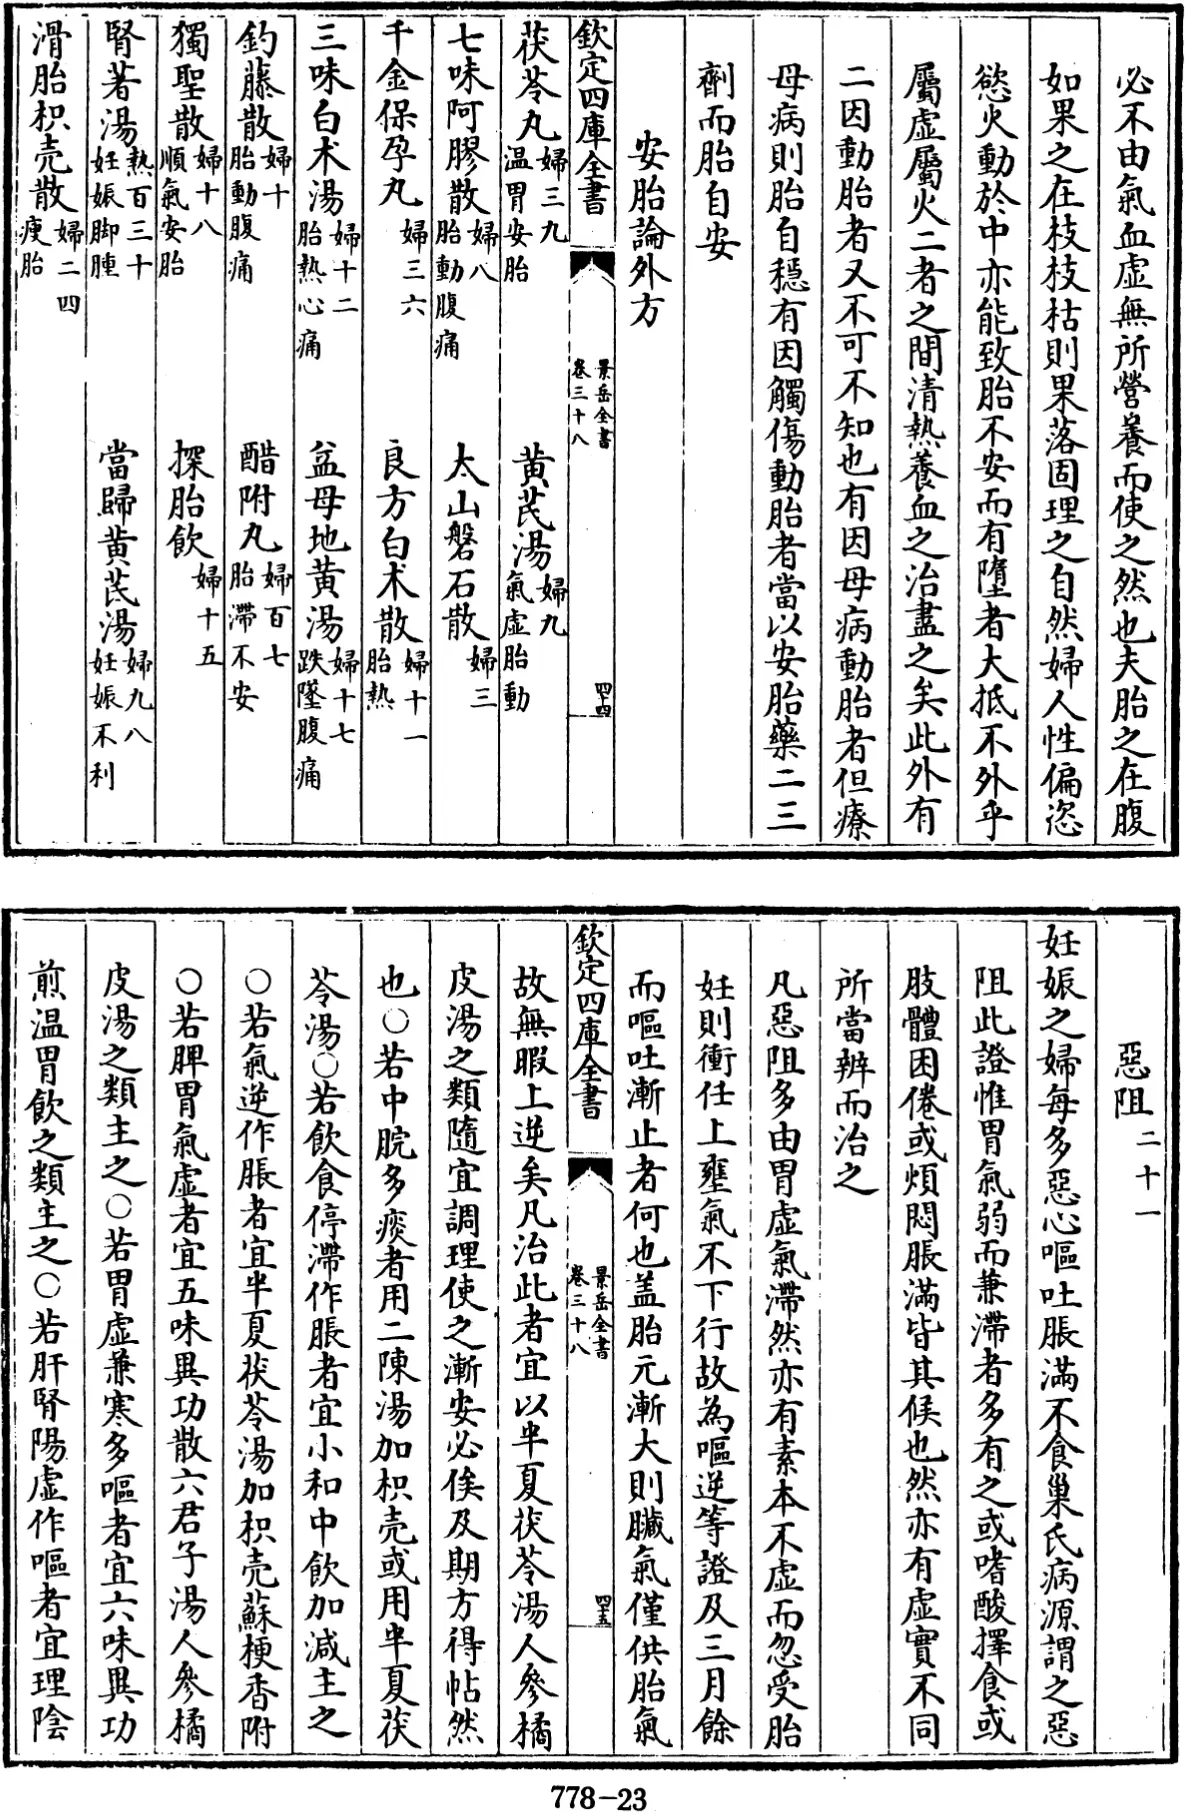 必不由氣血虛無所營養而使之然也夫胎之在腹
如果之在枝枝枯則果落固理之自然婦人性偏恣
慾火動於中亦能致胎不安而有墮者大抵不外乎
屬虛屬火二者之間清熱養血之治盡之矣此外有
二因動胎者又不可不知也有因母病動胎者但療
母病則胎自穩有因觸傷動胎者當以安胎藥二三
劑而胎自安
安胎論外方
欽定四庫全書
景岳全書
卷三十八
四十四
茯苓丸婦三九
溫胃安胎
黃芪湯婦九
氣虛胎動
七味阿膠散婦八
胎動腹痛
太山磐石散婦三
千金保孕丸婦三六
良方白术散婦十一
胎熱
三味白术湯婦十二
胎熱心痛
益母地黃湯婦十七
跌墜腹痛
釣藤散婦十
胎動腹痛
醋附丸婦百七
胎滯不安
獨聖散婦十八
順氣安胎
探胎飲婦十五
腎著湯熱百三十
妊娠脚腫
當歸黃芪湯婦九八
妊娠不利
滑胎枳壳散婦二四
瘦胎
惡阻二十一
妊娠之婦每多惡心嘔吐脹滿不食巢氏病源謂之惡
阻此證惟胃氣弱而兼滯者多有之或嗜酸擇食或
肢體困倦或煩悶脹滿皆其候也然亦有虛實不同
所當辨而治之
凡惡阻多由胃虛氣滯然亦有素本不虛而忽受胎
妊則衝任上壅氣不下行故為嘔逆等證及三月餘
而嘔吐漸止者何也盖胎元漸大則臟氣僅供胎氣
欽定四庫全書
景岳全書
卷三十八
四十五
故無暇上逆矣凡治此者宜以半夏茯苓湯人參橘
皮湯之類隨宜調理使之漸安必俟及期方得帖然
也○若中脘多痰者用二陳湯加枳壳或用半夏茯
苓湯○若飲食停滯作脹者宜小和中飲加減主之
○若氣逆作脹者宜半夏茯苓湯加枳壳蘇梗香附
○若脾胃氣虛者宜五味異功散六君子湯人參橘
皮湯之類主之○若胃虛兼寒多嘔者宜六味異功
煎溫胃飲之類主之○若肝腎陽虛作嘔者宜理陰
778-23